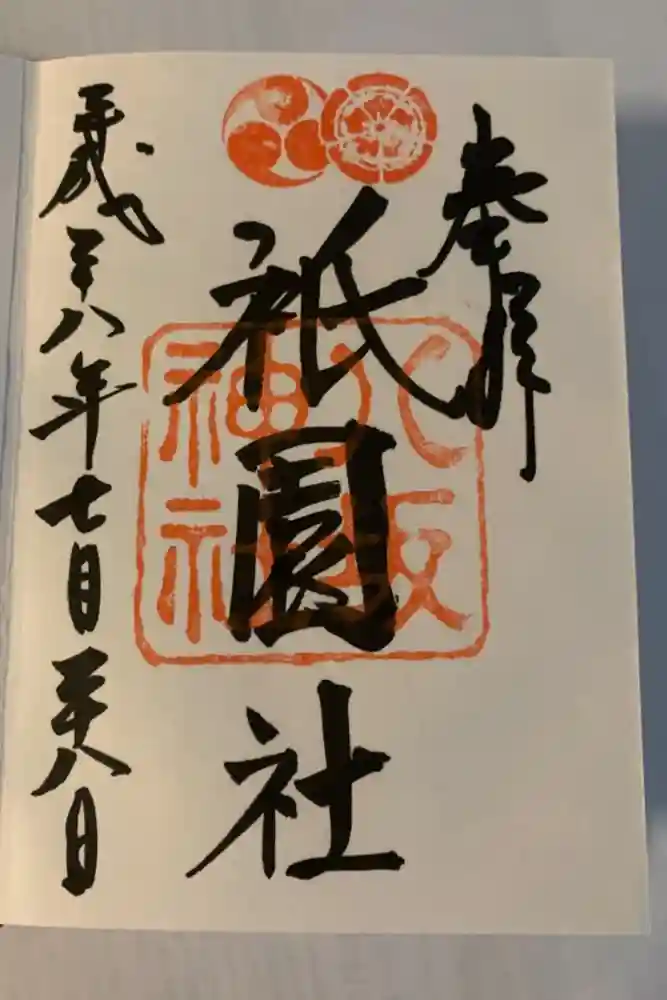 奉拝
祇園社
八坂
神社
平成二十八年七月二十八日